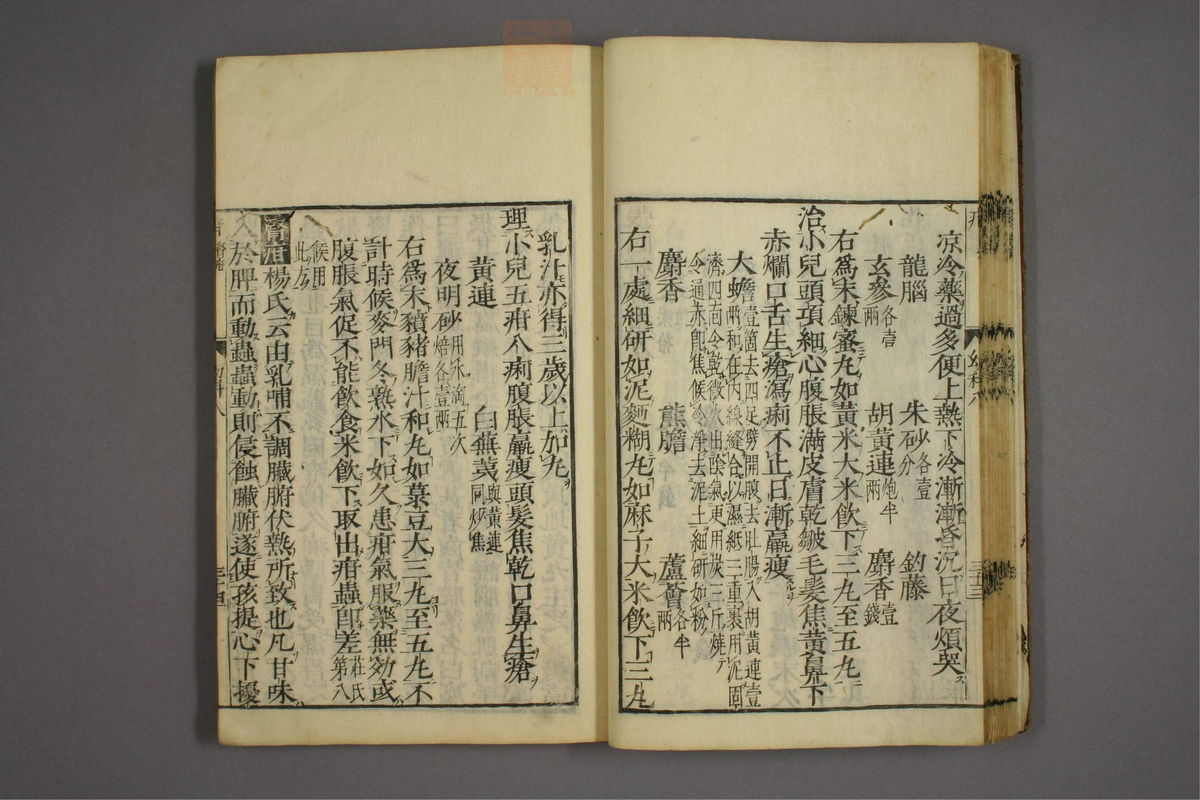 凉冷藥過多便上熱下冷漸漸昏沉日夜煩哭
龍腦 朱砂各壹分 釣藤
玄參各壹兩 胡黃連炮半兩 麝香壹錢
右爲末鍊蜜丸如黃米大米飲下三丸至五丸
治小兒頭項細心腹脹滿皮膚乾皺毛髮焦黃鼻下
赤爛口舌生瘡瀉痢不止日漸羸瘦
大蟾壹箇去四足劈開腹去肚腸入胡黃連壹
兩和在內線縫合以濕紙三重裹用泥固
濟四面令乾後火出陰氣更用炭三斤燒
令通赤卽焦候冷淨去泥土細研如粉
麝香 熊膽 蘆薈各半兩
右一處細研如泥麵糊丸如麻子大米飲下三丸
幼科八
三十三
乳汁亦得三歲以上加丸
理小兒五疳八痢腹脹羸瘦頭髮焦乾口鼻生瘡
黃連 白蕪荑與黃連同炒焦
夜明砂用水滴五次焙各壹兩
右爲末豶猪膽汁和丸如菉豆大三丸至五丸不
計時候麥門冬熟水下如久患疳氣服藥無効或
腹脹氣促不能飲食米飲下取出疳蟲卽差莊氏第八
候用
此方
楊氏云由乳哺不調臟腑伏熱所致也凡甘味
入於脾而動蟲蟲動則侵蝕臟腑遂使孩提心下擾
三十四